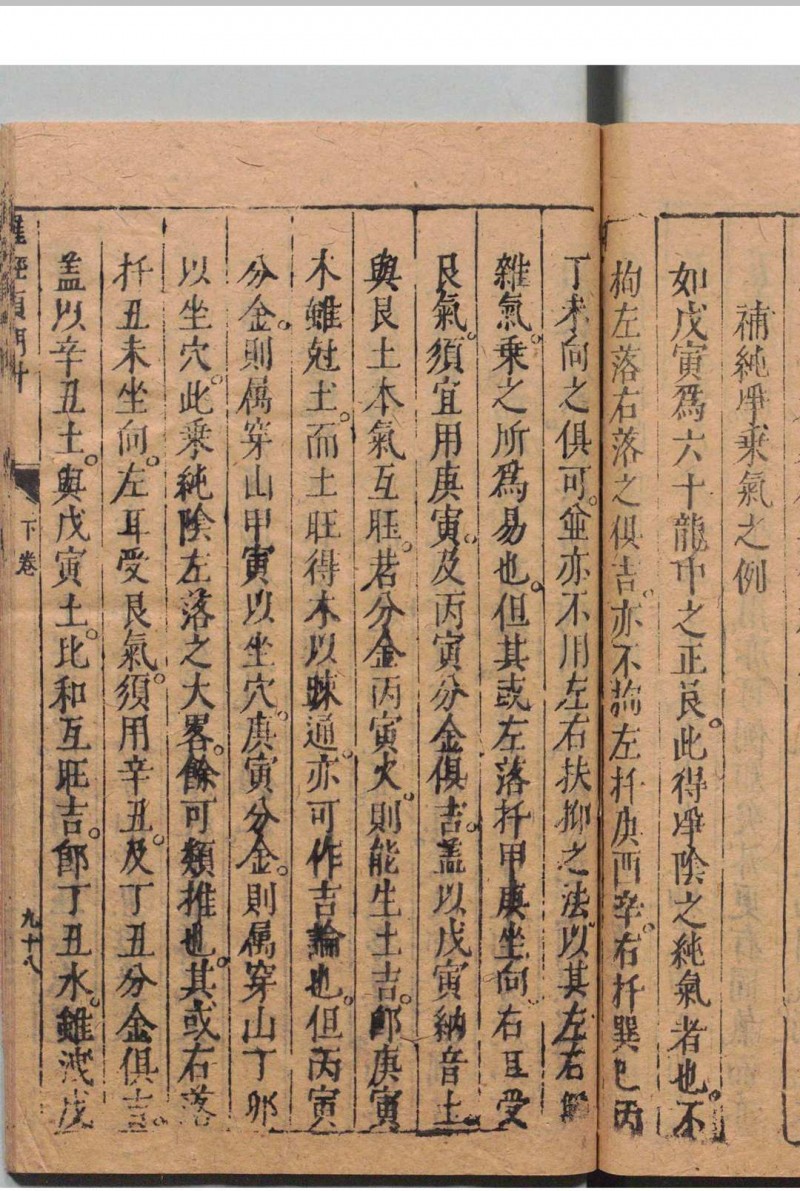 補純凈乘氣之例
如戊寅爲六十龍中之正艮。此得凈陰之純氣者也。不
拘左落右落之俱吉。亦不拘左扦庚酉辛。右扦巽巳丙
丁未向之俱可。並亦不用左右扶抑之法以其左右無
雜氣。乘之所爲易也。但其或左落扦甲庚坐向。右耳受
艮氣。須宜用庚寅。及丙寅分金俱吉。盖以戊寅納音土。
與艮土本氣互旺。若分金丙寅火。則能生土吉。郎庚寅
木雖尅土。而土旺得木以踈通。亦可作吉論也。但丙寅
分金。則属穿山甲寅以坐穴。庚寅分金。則属穿山丁卯
以坐穴。此乘純陰左落之大畧。餘可類推也。其或右落
扦丑未坐向。左耳受艮氣。須用辛丑。及丁丑分金俱吉。
盖以辛丑土。與戊寅土。比和互旺吉。郎丁丑水。雖洩戊
下卷
九十八